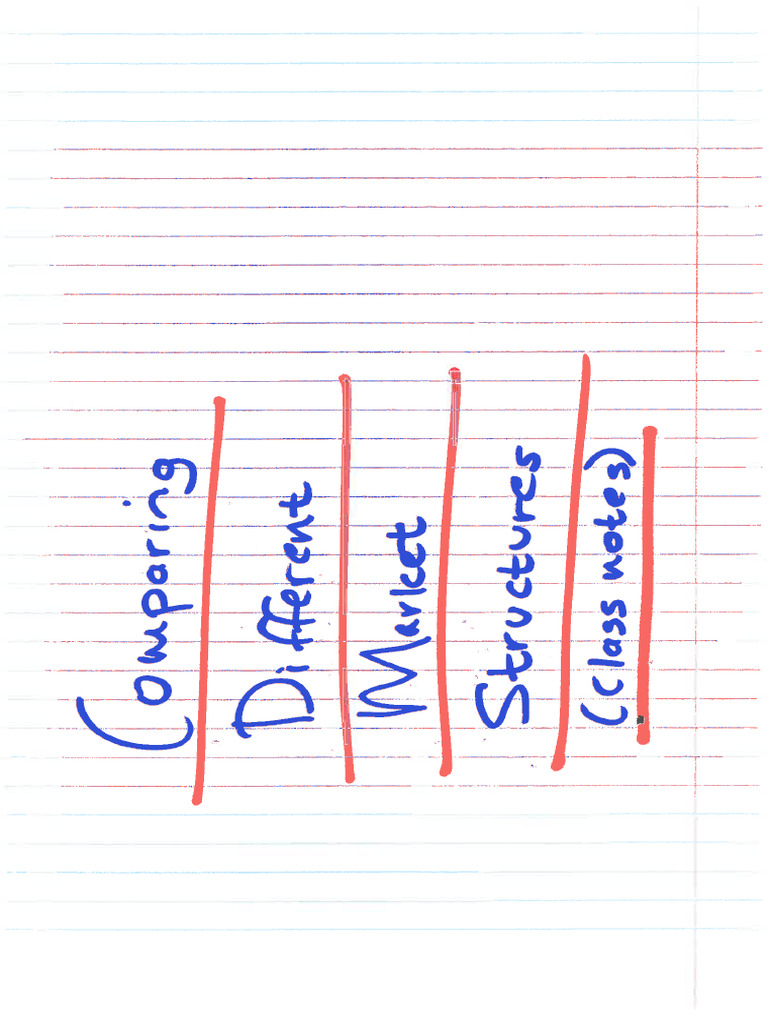 Comparing
Different
Market
Structures
(Class notes)